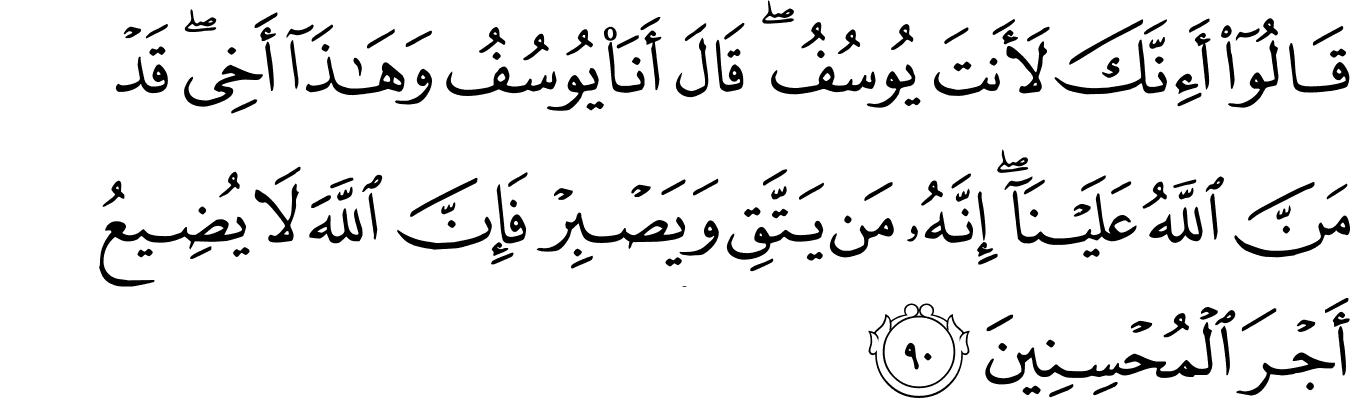 قَالُوٓا۟ أَءِنَّكَ لَأَنتَ يُوسُفُ ۖ قَالَ أَنَا۠ يُوسُفُ وَهَـٰذَآ أَخِى ۖ قَدْ
مَنَّ ٱللَّهُ عَلَيْنَآ ۖ إِنَّهُۥ مَن يَتَّقِ وَيَصْبِرْ فَإِنَّ ٱللَّهَ لَا يُضِيعُ
أَجْرَ ٱلْمُحْسِنِينَ ٩٠